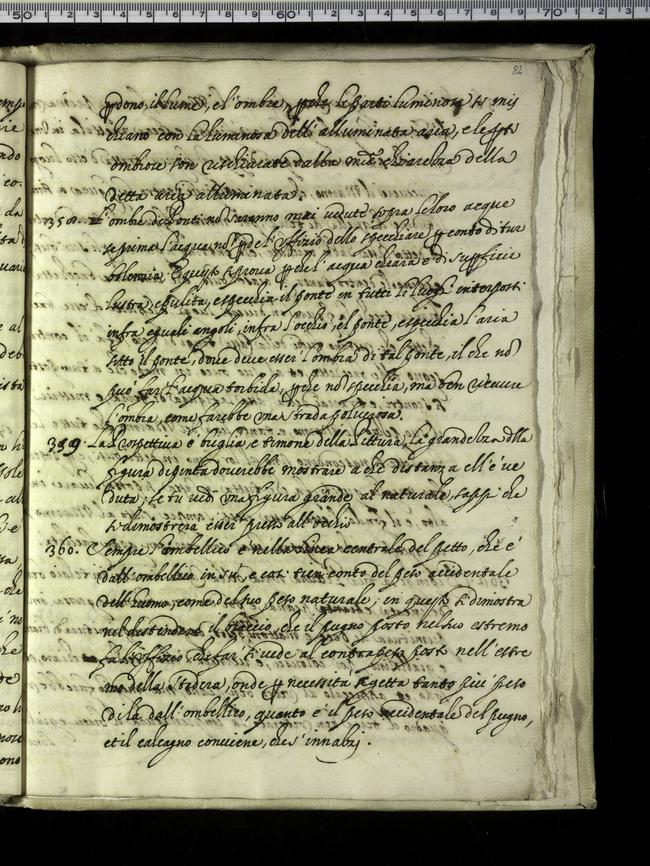 82
ꝑdono, il lume, e l'ombre, ꝑche le parti luminose si mis
chiano con la luminosa dell' alluminata aria, e le parti
ombrose son
detta aria alluminata.
358. L'ombre de Ponti nō saranno mai vedute sopra le loro acque
se prima l'acqua nō ꝑde l'uffizio dello specchiare ꝑ conto di tur
bolenzia, E questo si prova ꝑche l'acqua chiara è di supficie
lustra, e pulita, e specchia il ponte in tutti li luoghi interposti
infra eguali angoli, infra l'occhio, e'l ponte, e specchia l'aria
sotto il ponte, dove deve esser l'ombra di tal ponte, il che nō
può far l'acqua torbida, ꝑche nō specchia, ma ben riceve
l'ombra, come farebbe una strada polverosa.
359. La Prospettiva è briglia, e timone della Pittura. La grandezza dlla
figura dipinta doverebbe mostrare a che distanza ell'è ve
duta; se tu vedi una figura grande al naturale, sappi che
si dimostrera esser presso all'occhio
360. Sempre l'ombellico è nella linea centrale del petto, che è
dall'ombellico in sù, e cosi tien conto del peso accidentale
dell'huomo, come del suo peso naturale; in questo si dimostra
nel distendere il braccio, che il pugno posto nel suo estremo
fa l'uffizio, che far si vede al contrapeso posto nell'estre
mo della stadera, onde ꝑ necessita si getta tanto piu peso
di là dall'ombellico, quanto è il peso accidentale del pugno,
et il calcagno conviene, che s'innalzi.